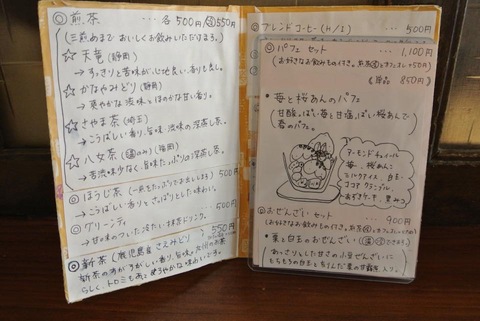 ◎ 煎茶 ・・・ 各 500円/温550円
(三煎めまで おいしくお飲みいただけます。)
☆ 天竜 (静岡)
→ すっきりと苦味が心地良い香りも良し。
☆ かなやみどり (静岡)
→ 爽やかな渋味とほのかな甘い香り。
☆ さやま茶 (埼玉)
→ こうばしい香り、旨味、渋味の深蒸し茶。
☆ 八女茶 (のみ) (福岡)
→ 苦渋味少なく、旨味たっぷりの深蒸し茶。
◎ ほうじ茶 500円
→ こうばしい香りとさっぱりとした味わい。
◎ グリーンティ 500円
→ 甘味のついた冷たい抹茶ドリンク。
◎ 新茶 (鹿児島産 さえみどり) 550円
らしく、トロミもあるまろやかな味わいです。
◎ ブレンドコーヒー (H/I) ・・・ 500円
◎ パフェ セット ・・・ 1,100円
《単品 850円》
・ 苺と桜あんのパフェ
甘酸っぱい苺と甘塩っぱい桜あんで
春のパフェ。
アーモンドチュイール
苺、桜あん
ミルクアイス、白玉
ココアクランブル
あずきかん、黒みつ
◎ おぜんざい セット ・・・ 900円
・ 栗と白玉のおぜんざい
あっさりとした甘さの小豆ぜんざいに
もちもちの白玉と